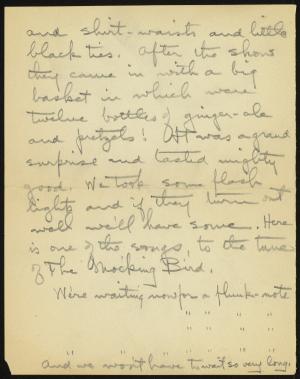 and shirt-waists and little
black ties. After the show
they came in with a big
basket in which were
twelve bottles of ginger-ale
and pretzels! It was a grand
surprise and tasted mighty
good. We took some flash
lights and if they turn out
well we'll have some. Here
is one of the songs, to the tune
of The Mocking Bird.
We're waiting now for a flunk-note
" " "
" " "
" " "
And we won't have to wait so very long.